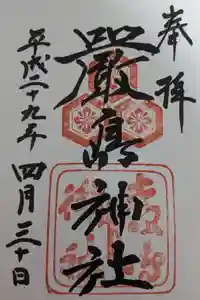 奉拝
嚴島神社
平成二十九年
四月三十日